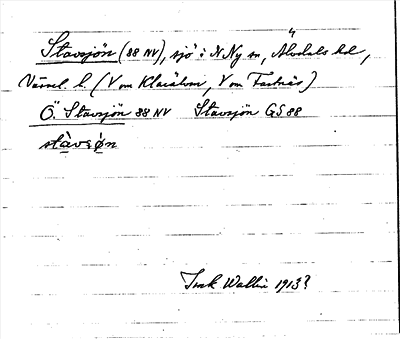 Stavsjön (88 NV), sjö i N Ny sn, Älvdals hd,
Värml. l. (V om Klarälven, V om Fastnäs)
Ö. Stavsjön 88 NV Stavsjön GS 88
Wallin 1913?